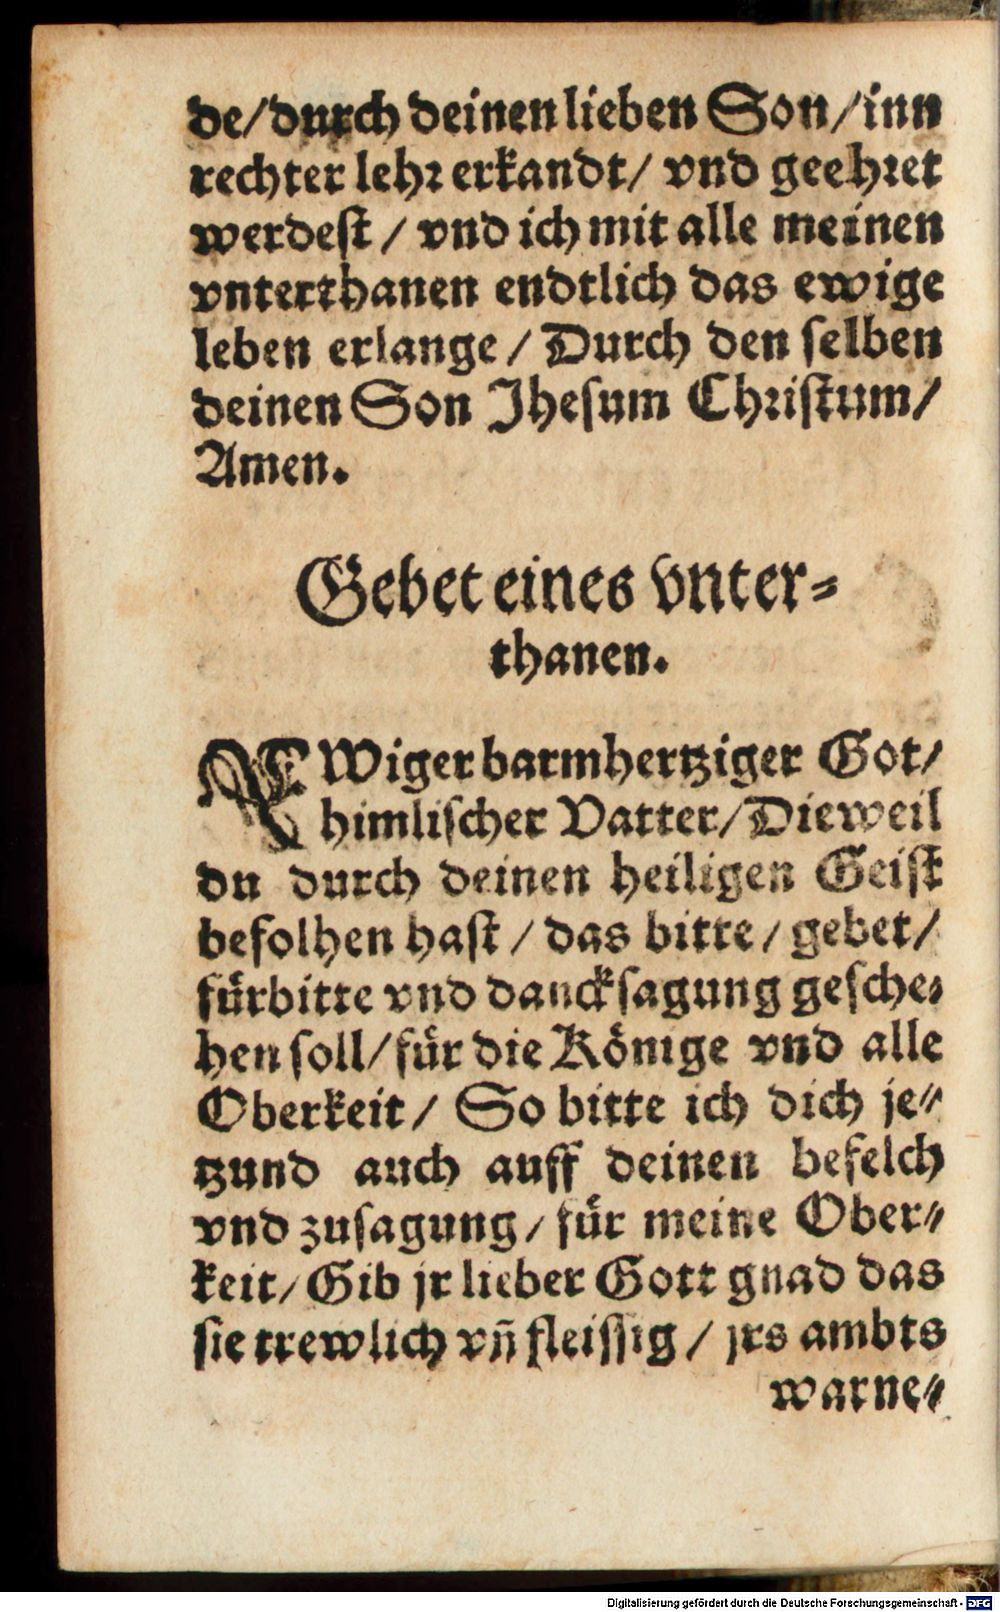 de/durch deinen lieben Son/inn
rechter lehr erkandt/ vnd geehret
werdest / vnd ich mit alle meinen
vnterthanen endtlich das ewige
leben erlange / Durch den selben
deinen Son Jhesum Christum/
Amen.
Gebet eines vnter-
thanen.
EWiger barmhertziger Got/
himlischer Vatter/Dieweil
du durch deinen heiligen Geist
befolhen hast / das bitte / gebet/
fürbitte vnd dancksagung gesche-
hen soll/für die Könige vnd alle
Oberkeit/ So bitte ich dich je-
tzund auch auff deinen befelch
vnd zusagung / für meine Ober-
keit/ Gib jr lieber Gott gnad das
sie trewlich vn̄ fleissig / jrs ambts
warne-
Digitalisierung gefördert durch die Deutsche Forschungsgemeinschaft - DFG